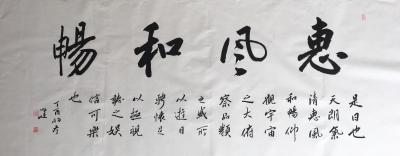 惠風和暢
是日也
天朗氣
清惠風
和暢仰
觀宇宙
之大俯
察品類
之盛所
以遊目
騁懷足
以極視
聽之娛
信可樂
也
丁酉